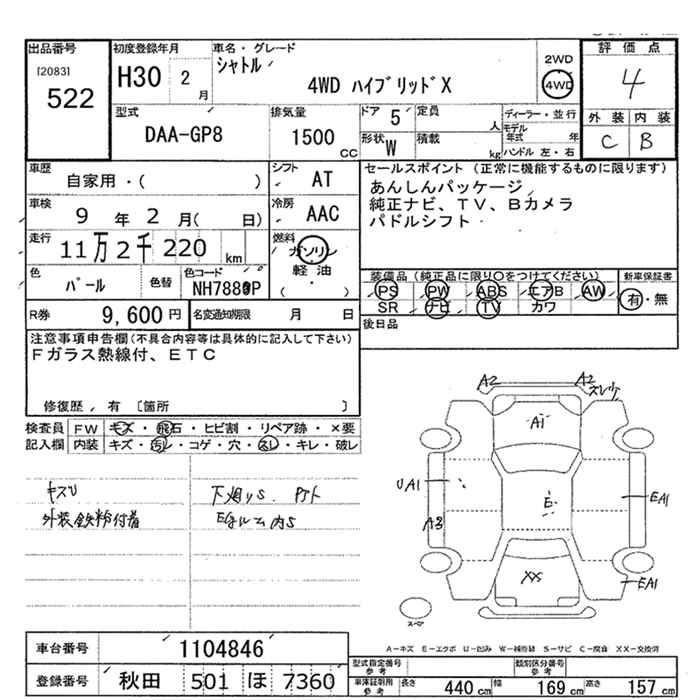 出品番号
[2083]
522
初度登録年月
H30 2 月
車名・グレード
シャトル
4WD ハイブリッドX
2WD
4WD
評価点
4
外装 内装
C B
型式
DAA-GP8
排気量
1500 CC
ドア 5
定員 人
形状 W
積載 kg
ディーラー・並行
モデル年式 年
ハンドル 左・右
車歴
自家用・( )
シフト AT
車検 9 年 2 月( 日)
冷房 AAC
走行 11万2千220 km
燃料 ガソリン
軽油
( ・ )
色 パール
色替
色コード NH788P
R券 9,600 円
名変通知期限 月 日
セールスポイント(正常に機能するものに限ります)
あんしんパッケージ
純正ナビ、TV、Bカメラ
パドルシフト
装備品(純正品に限り○をつけてください)
PS PW ABS エアB AW
SR ナビ TV カワ
新車保証書
有・無
後日品
注意事項申告欄(不具合内容等は具体的に記入して下さい)
Fガラス熱線付、ETC
修復歴、有 〔箇所 〕
検査員記入欄
FW キズ・飛石・ヒビ割・リペア跡・×要
内装 キズ・汚レ・コゲ・穴・スレ・キレ・破レ
キズU
外装鉄粉付着
下廻りS.
Egルーム内S
A2 A2
A1
UA1
A3
E
EA1
EA1
XX
スペア
A-キズ E-エクボ U-凹み W-補修跡 S-サビ C-腐食 XX-交換済
車台番号 1104846
登録番号 秋田 501 ほ 7360
型式指定番号 参考
類別区分番号 参考
車庫証明用 参考
長さ 440 cm 幅 169 cm 高さ 157 cm